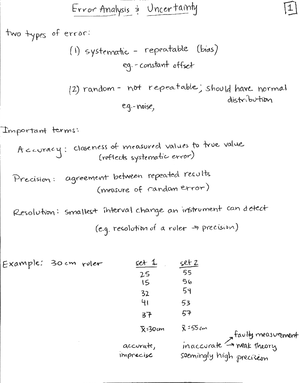 Error Analysis & Uncertainty
1
two types of error:
(1) systematic - repeatable (bias)
eg - constant offset
(2) random - not repeatable; should have normal
distribution
eg-noise,
Important terms:
Accuracy: closeness of measured values to true value
(reflects systematic error)
Precision: agreement between repeated results
(measure of random error)
Resolution: smallest interval change an instrument can detect
(e.g. resolution of a ruler → precision)
Example: 30cm ruler
set 1 set 2
25 55
15 56
32 54
41 53
37 57
x̄:30cm x̄:55cm
accurate, imprecise
inaccurate → faulty measurement
→ weak theory
seemingly high precision